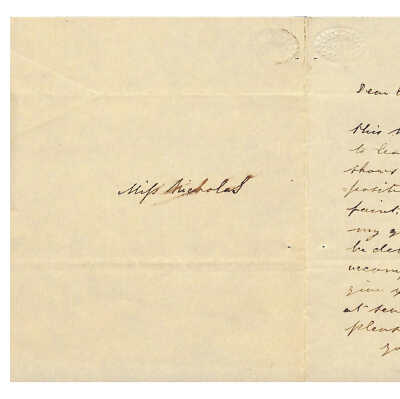 Miss Nicholas
Dear
this
to lea
shows
posit
paint
my g
be de
accom
give y
at sev
pleas
yo